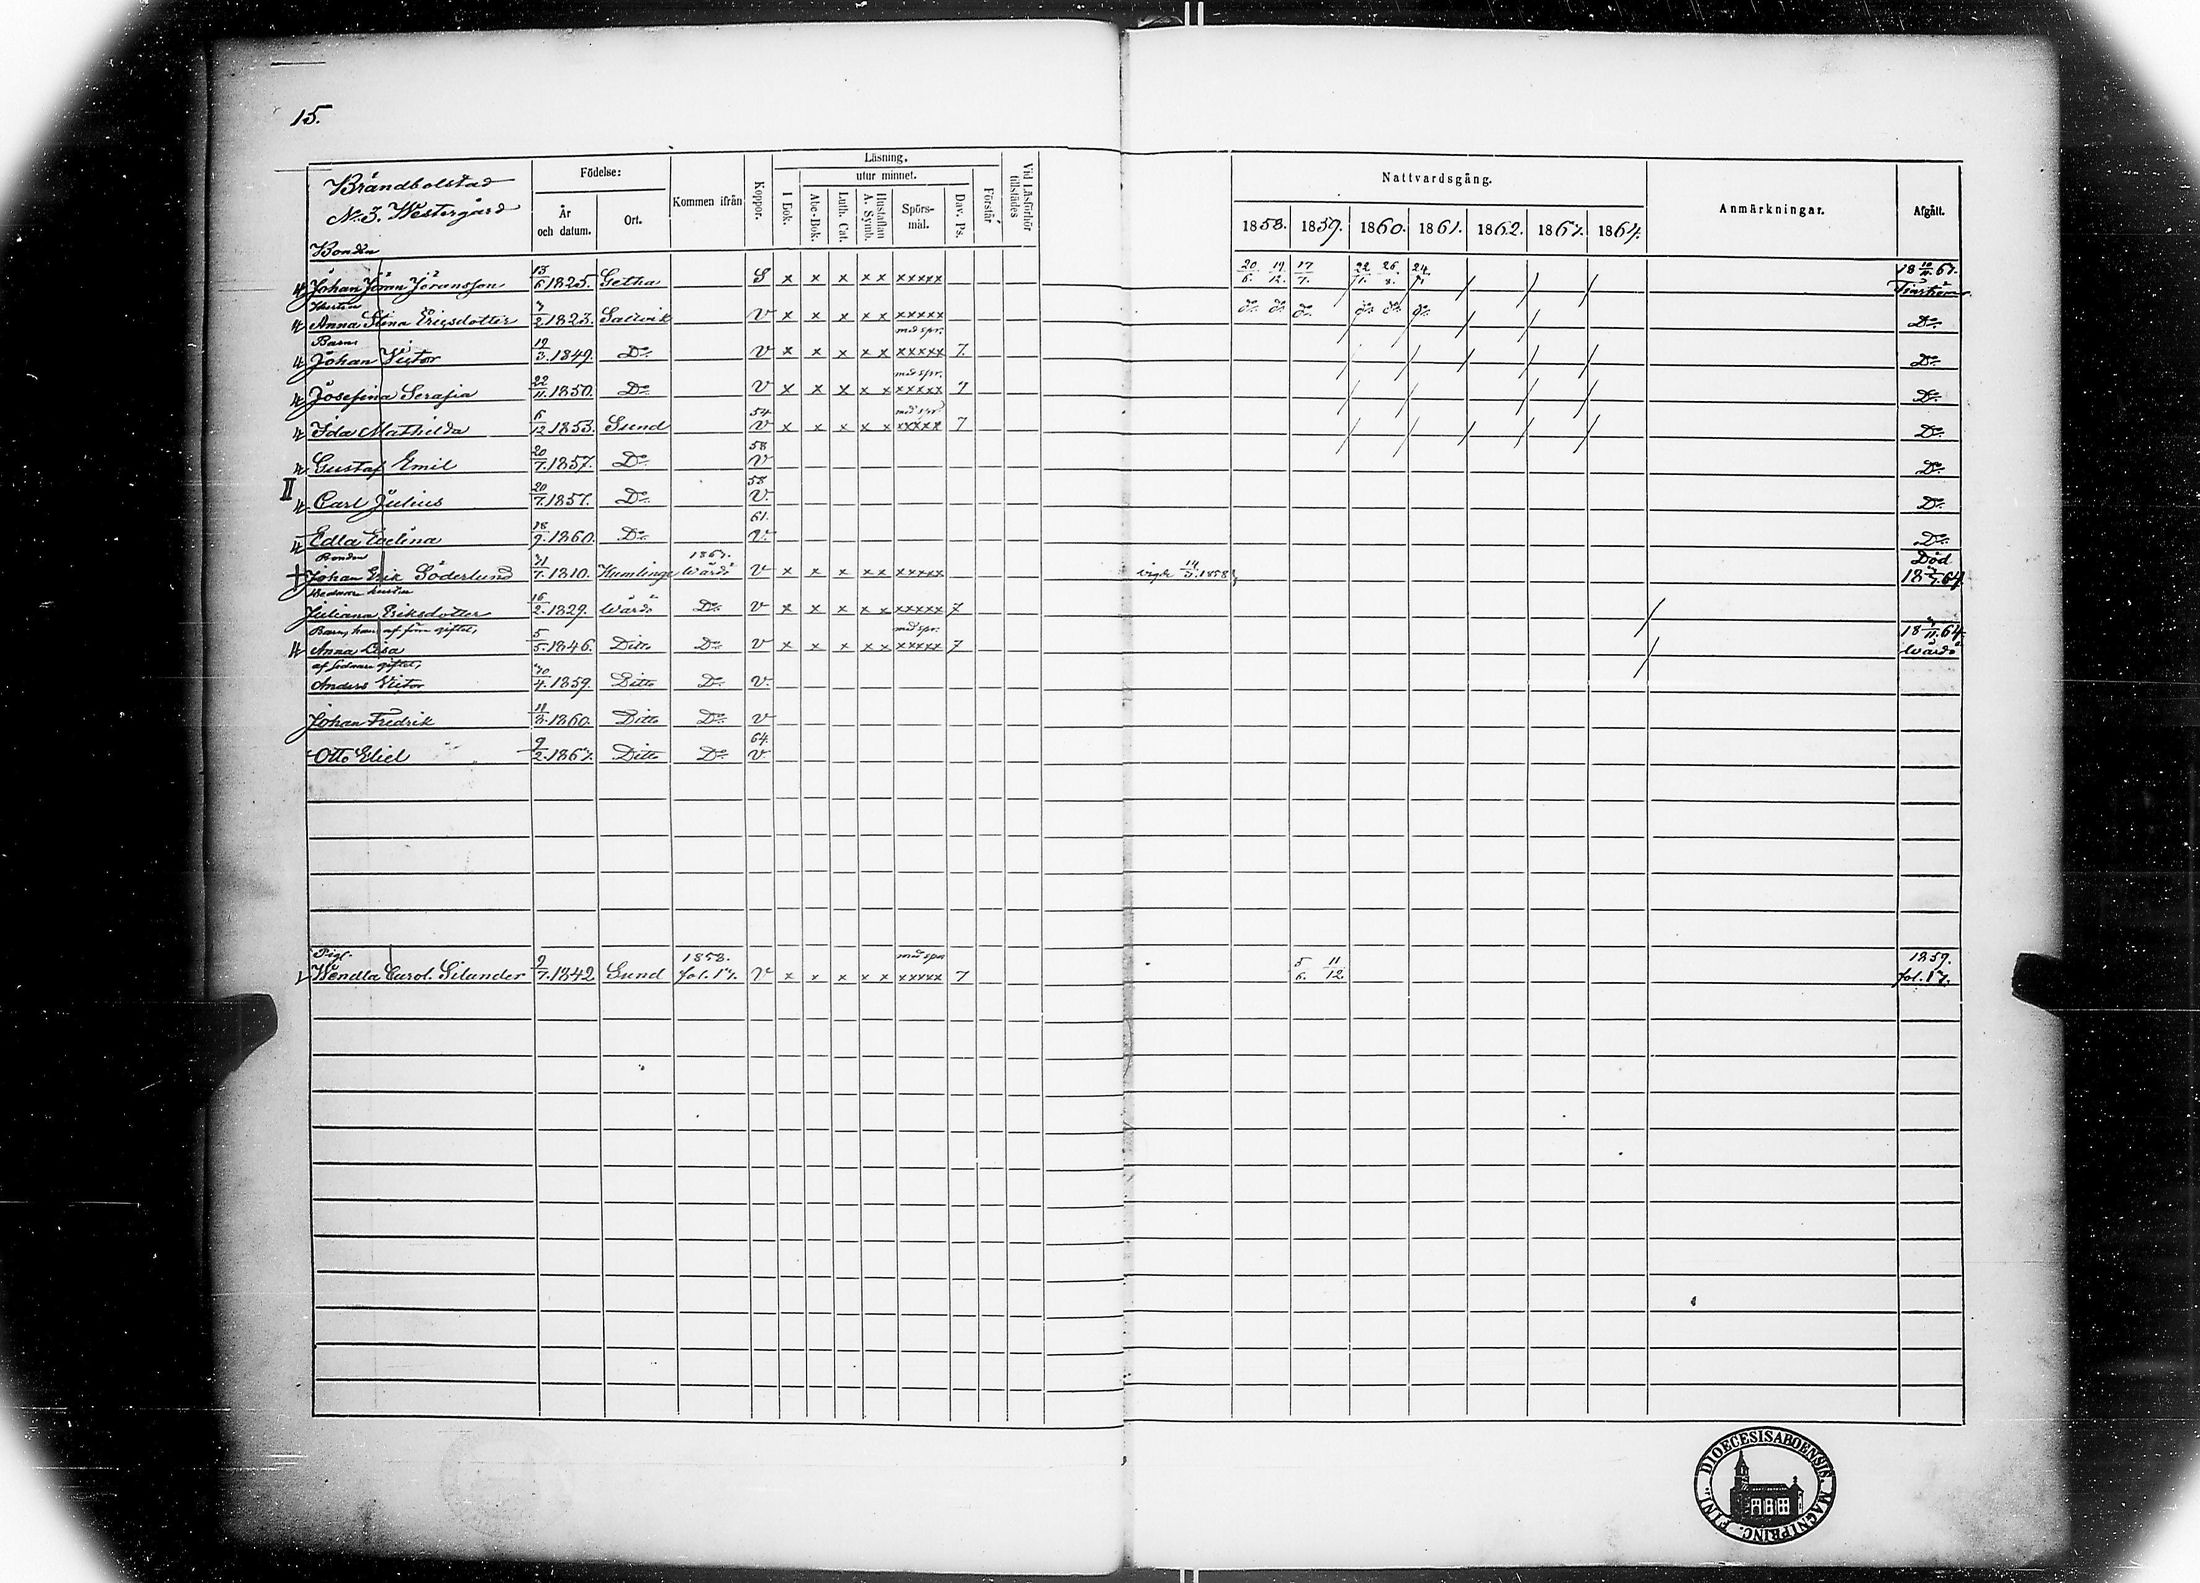 15.
Brändbolstad
No 3. Westergård
Födelse:
År och datum.
Ort.
Kommen ifrån
Koppor.
Läsning.
utur minnet.
I Bok.
Abc-Bok.
Luth. Cat.
Hustaflan A. Symb.
Spörsmål.
Dav. Ps.
Förstår
Vid Läsförhör tillstädes
Nattvardsgång.
1858. 1859. 1860. 1861. 1862. 1863. 1864.
Anmärkningar.
Afgått.
Bonden
Johan Jöran Jöransson 13/6 1825. Getha S x x x x x xxxxx 20/6. 19/12. 17/7. 18 10/11 63.
Hustru
Anna Stina Ericsdotter 3/2 1823. Saltvik V x x x x x xxxxx Do
Barn: med spr.
Johan Victor 19/3. 1849. Do V x x x x x xxxxx 7. Do
med spr.
Josefina Serafia 22/11. 1850. Do V x x x x x xxxxx 7 Do
54 med spr.
Ida Mathilda 6/12 1853. Sund V x x x x x xxxxx 7 Do
58
Gustaf Emil 20/7. 1857. Do V Do
II
58
Carl Julius 20/7. 1857. Do V. Do
61.
Edla Evelina 18/9. 1860. Do V. Do
Bonden 1863. Död
Johan Erik Söderlund 1810. Kumlinge Wårdö V x x x x x xxxxx vigde 1858 64.
Juliana Eriksdotter 16/2. 1829. Wårdö Do V x x x x x xxxxx 7
med spr. 64.
Anna Lisa 5/5. 1846. Ditto Do V x x x x x xxxxx 7 Wårdö
af sednare giftet,
Anders Victor 1859. Ditto Do V.
Johan Fredrik 11/3. 1860. Ditto Do V
64.
Otto Eliel 9/2. 1863. Ditto Do V
Pig. 1858. med spr. 1859.
Wendla Carol. Silander 9/7. 1842 Sund fol. 17. V x x x x x xxxxx 7 5/6. 11/12. fol. 17.
DIOECESIS ABOENSIS. MAGNI PRINC. FINL.